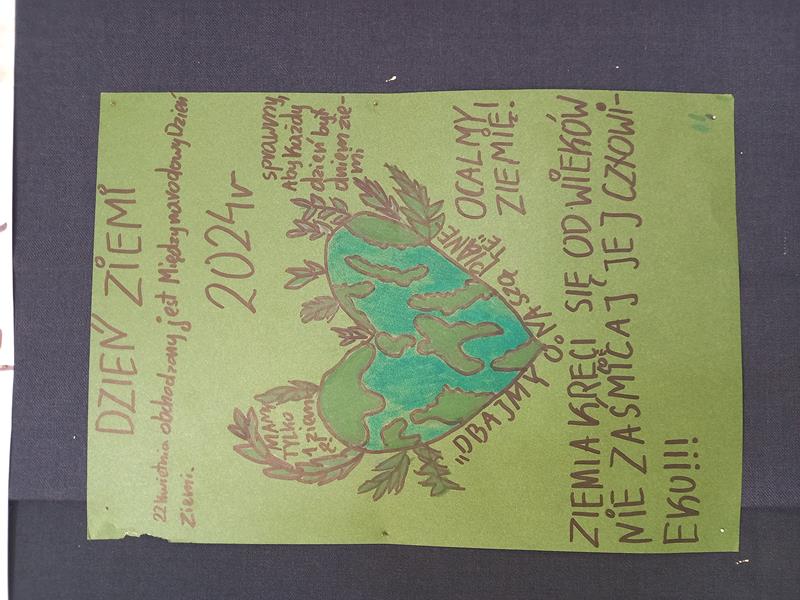 DZIEŃ ZIEMI
22 kwietnia obchodzony jest Międzynarodowy Dzień
Ziemi.
2024r
sprawmy,
Aby każdy
dzień był
dniem zie-
mi
MAMY
TYLKO
1 ziemi
ę!
OCALMY
ZIEMIĘ!
„DBAJMY O NASZĄ PLANETĘ!
ZIEMIA KRĘCI SIĘ OD WIEKÓW
NIE ZAŚMICAJ JEJ CZŁOWI-
EKU!!!